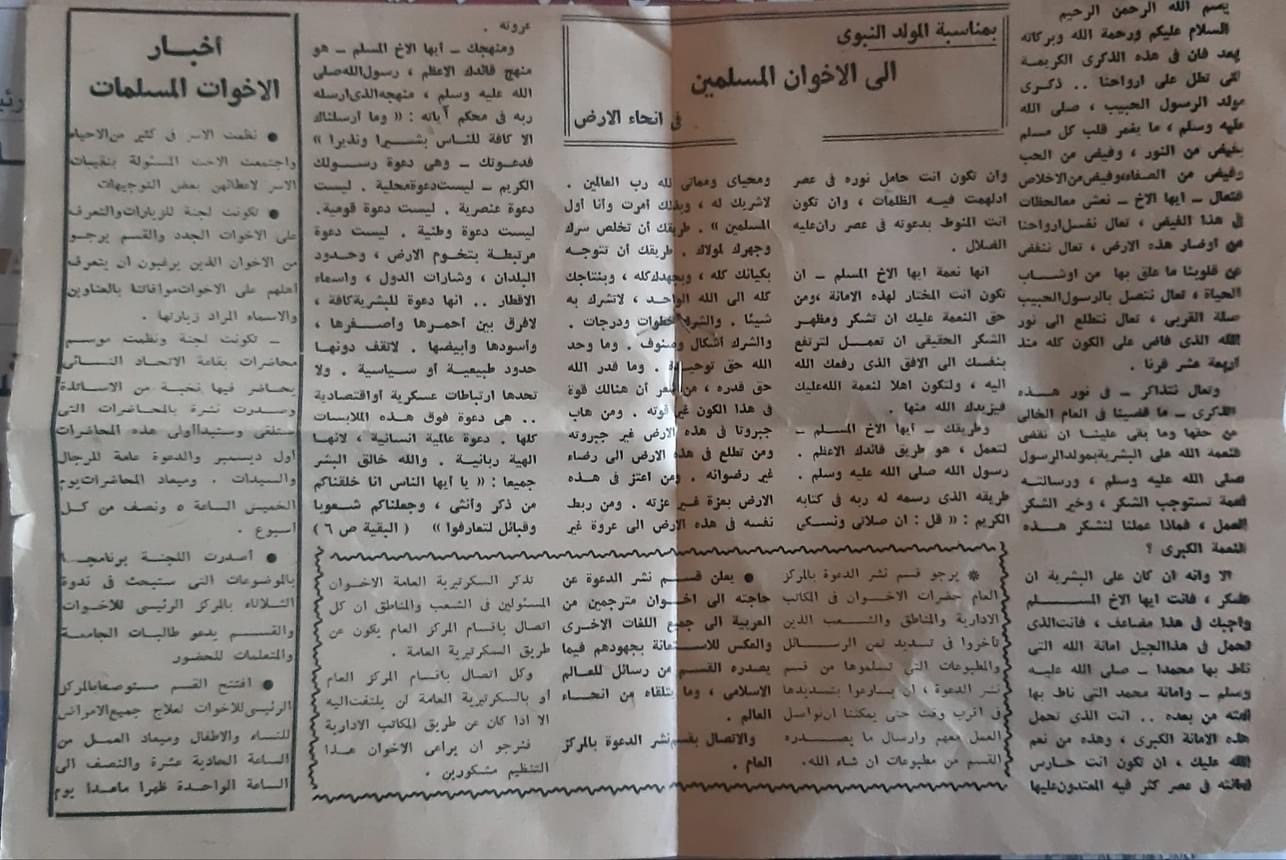 بمناسبة المولد النبوى
الى الاخوان المسلمين
فى انحاء الارض
بسم الله الرحمن الرحيم
السلام عليكم ورحمة الله وبركاته
بعد فان فى هذه الذكرى الكريمة
التى تطل على ارواحنا . . ذكرى
مولد الرسول الحبيب ، صلى الله
عليه وسلم ، ما يغمر قلب كل مسلم
بفيض من النور ، وفيض من الحب
وفيض من الصفاء،وفيض من الاخلاص
فتعال ــ ايها الاخ ــ نعش معا لحظات
فى هذا الفيض ، تعال نغسل ارواحنا
من اوضار هذه الارض ، تعال ننفض
عن قلوبنا ما علق بها من اوشاب
الحياة ، تعال نتصل بالرسول الحبيب
صلة القربى ، تعال نتطلع الى نور
الله الذى فاض على الكون كله منذ
اربعة عشر قرنا .
وتعال نتذاكر ــ فى نور هــذه
الذكرى ــ ما قضينا فى العام الخالى
من حقها وما بقى علينا ان نقضى
فنعمة الله على البشرية بمولد الرسول
صلى الله عليه وسلم ، ورسالته
نعمة تستوجب الشكر ، وخير الشكر
العمل ، فماذا عملنا لنشكر هــذه
النعمة الكبرى ؟
الا وانه ان كان على البشرية ان
تشكر ، فانت ايها الاخ المسلم
واجبك فى هذا مضاعف ، فانت الذى
تحمل فى هذا الجيل امانة الله التى
ناط بها محمدا ــ صلى الله عليه
وسلم ــ وامانة محمد التى ناط بها
امته من بعده . . انت الذى تحمل
هذه الامانة الكبرى ، وهذه من نعم
الله عليك ، ان تكون انت حارس
امانته فى عصر كثر فيه المعتدون عليها
وان تكون انت حامل نوره فى عصر
ادلهمت فيه الظلمات ، وان تكون
انت المنوط بدعوته فى عصر ران عليه
الضلال .
انها نعمة ايها الاخ المسلم ــ ان
تكون انت المختار لهذه الامانة ،ومن
حق النعمة عليك ان تشكر ومظهر
الشكر الحقيقى ان تعمل لترتفع
بنفسك الى الافق الذى رفعك الله
اليه ، ولتكون اهلا لنعمة الله عليك
فيزيدك الله منها .
وطريقك ــ ايها الاخ المسلم ــ
لتعمل ، هو طريق قائدك الاعظم .
رسول الله صلى الله عليه وسلم .
طريقه الذى رسمه له ربه فى كتابه
الكريم : « قل : ان صلاتى ونسكى
ومحياى ومماتى لله رب العالمين .
لاشريك له ، وبذلك أمرت وأنا أول
المسلمين » . طريقك أن تخلص سرك
وجهرك لمولاك . طريقك أن تتوجه
بكيانك كله ، وبجهدك كله ، وبنتاجك
كله الى الله الواحد ، لاتشرك به
شيئا . والشرك خطوات ودرجات .
والشرك أشكال وصنوف . وما وحد
الله حق توحيده . وما قدر الله
حق قدره ، من شعر أن هنالك قوة
فى هذا الكون غير قوته . ومن هاب
جبروتا فى هذه الارض غير جبروته
ومن تطلع فى هذه الارض الى رضاء
غير رضوانه . ومن اعتز فى هذه
الارض بعزة غير عزته . ومن ربط
نفسه فى هذه الارض الى عروة غير
عروته .
ومنهجك ــ ايها الاخ المسلم ــ هو
منهج قائدك الاعظم ، رسول الله صلى
الله عليه وسلم ، منهجه الذى ارسله
ربه فى محكم آياته : « وما ارسلناك
الا كافة للناس بشيرا ونذيرا »
فدعوتك ــ وهى دعوة رسولك
الكريم ــ ليست دعوة محلية . ليست
دعوة عنصرية . ليست دعوة قومية.
ليست دعوة وطنية . ليست دعوة
مرتبطة بتخوم الارض ، وحدود
البلدان ، وشارات الدول ، واسماء
الاقطار . . انها دعوة للبشرية كافة ،
لافرق بين أحمرها وأصفرها ،
وأسودها وأبيضها . لاتقف دونها
حدود طبيعية أو سياسية . ولا
تحدها ارتباطات عسكرية أو اقتصادية
. . هى دعوة فوق هذه الملابسات
كلها . دعوة عالمية انسانية ، لانها
الهية ربانية . والله خالق البشر
جميعا : « يا أيها الناس انا خلقناكم
من ذكر وأنثى ، وجعلناكم شعوبا
وقبائل لتعارفوا » ( البقية ص ٦ )
* يرجو قسم نشر الدعوة بالمركز
العام حضرات الاخوان فى المكاتب
الادارية والمناطق والشعب الذين
تأخروا فى تسديد ثمن الرسائل
والمطبوعات التى تسلموها من قسم
نشر الدعوة ، ان يسارعوا بتسديدها
فى اقرب وقت حتى يمكننا ان نواصل
العمل معهم وارسال ما يصدره
القسم من مطبوعات ان شاء الله.
● يعلن قسم نشر الدعوة عن
حاجته الى اخوان مترجمين من
العربية الى جميع اللغات الاخرى
والعكس للاستعانة بجهودهم فيما
يصدره القسم من رسائل للعالم
الاسلامى ، وما يتلقاه من انحاء
العالم .
والاتصال بقسم نشر الدعوة بالمركز
العام .
تذكر السكرتيرية العامة الاخوان
المسئولين فى الشعب والمناطق ان كل
اتصال باقسام المركز العام يكون عن
طريق السكرتيرية العامة .
وكل اتصال باقسام المركز العام
أو بالسكرتيرية العامة لن يلتفت اليه
الا اذا كان عن طريق المكاتب الادارية
فنرجو ان يراعى الاخوان هذا
التنظيم مشكورين .
أخبار
الاخوات المسلمات
● نظمت الاسر فى كثير من الاحياء
واجتمعت الاخت المسئولة بنقيبات
الاسر لاعطائهن بعض التوجيهات
● تكونت لجنة للزيارات والتعرف
على الاخوات الجدد والقسم يرجو
من الاخوان الذين يرغبون ان يتعرف
أهلهم على الاخوات موافاتنا بالعناوين
والاسماء المراد زيارتها .
ــ تكونت لجنة ونظمت موسم
محاضرات بقاعة الاتحاد النسائى
يحاضر فيها نخبة من الاساتذة
وصدرت نشرة بالمحاضرات التى
ستلقى وستبدأ اولى هذه المحاضرات
أول ديسمبر والدعوة عامة للرجال
والسيدات . وميعاد المحاضرات يوم
الخميس الساعة ٥ ونصف من كل
اسبوع .
● أصدرت اللجنة برنامجا
بالموضوعات التى ستبحث فى ندوة
الثلاثاء بالمركز الرئيسى للأخوات
والقسم يدعو طالبات الجامعة
والمتعلمات للحضور
● افتتح القسم مستوصفا بالمركز
الرئيسى للاخوات لعلاج جميع الامراض
للنساء والاطفال وميعاد العمل من
الساعة الحادية عشرة والنصف الى
الساعة الواحدة ظهرا ماعدا يوم